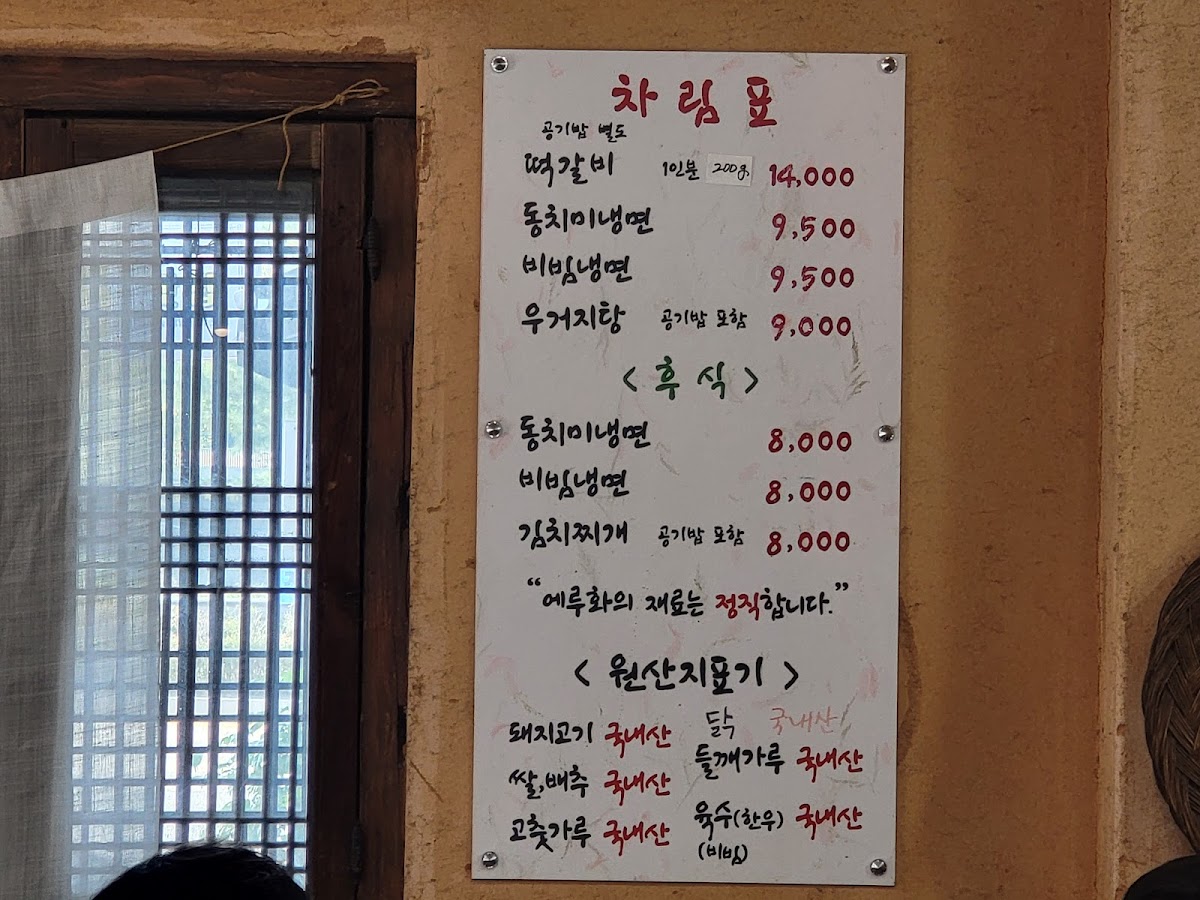 차림표
공기밥 별도
떡갈비 1인분 200g. 14,000
동치미냉면 9,500
비빔냉면 9,500
우거지탕 공기밥 포함 9,000
< 후식 >
동치미냉면 8,000
비빔냉면 8,000
김치찌개 공기밥 포함 8,000
“예루화의 재료는 정직합니다.”
< 원산지표기 >
돼지고기 국내산 닭 국내산
쌀,배추 국내산 들깨가루 국내산
고춧가루 국내산 육수(한우) 국내산
(비빔)